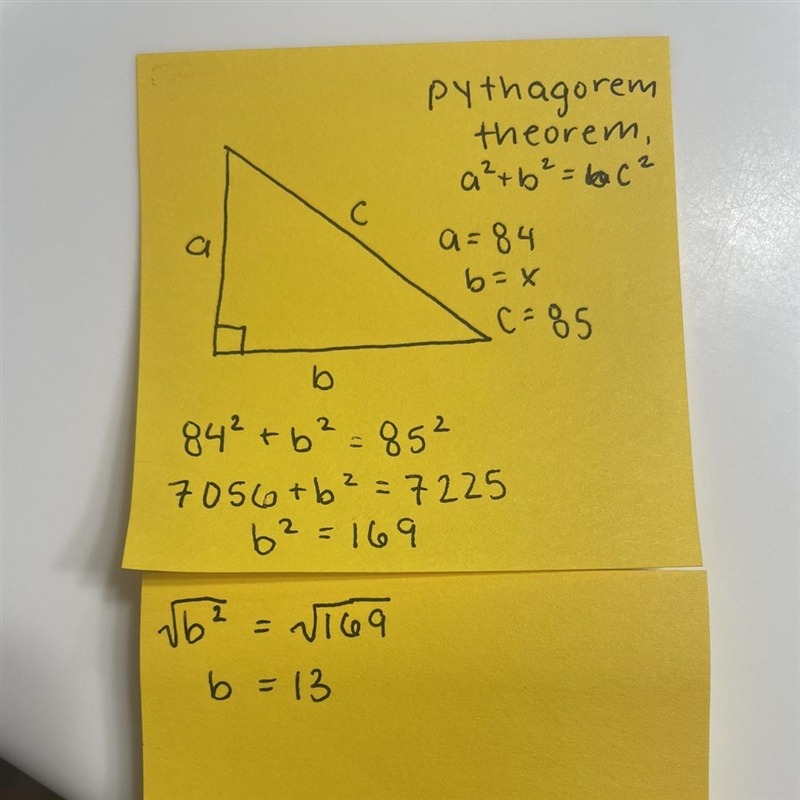 pythagorem
theorem,
a²+b² = c²
c
a
a = 84
b = x
c = 85
b
84² + b² = 85²
7056 + b² = 7225
b² = 169
√b² = √169
b = 13